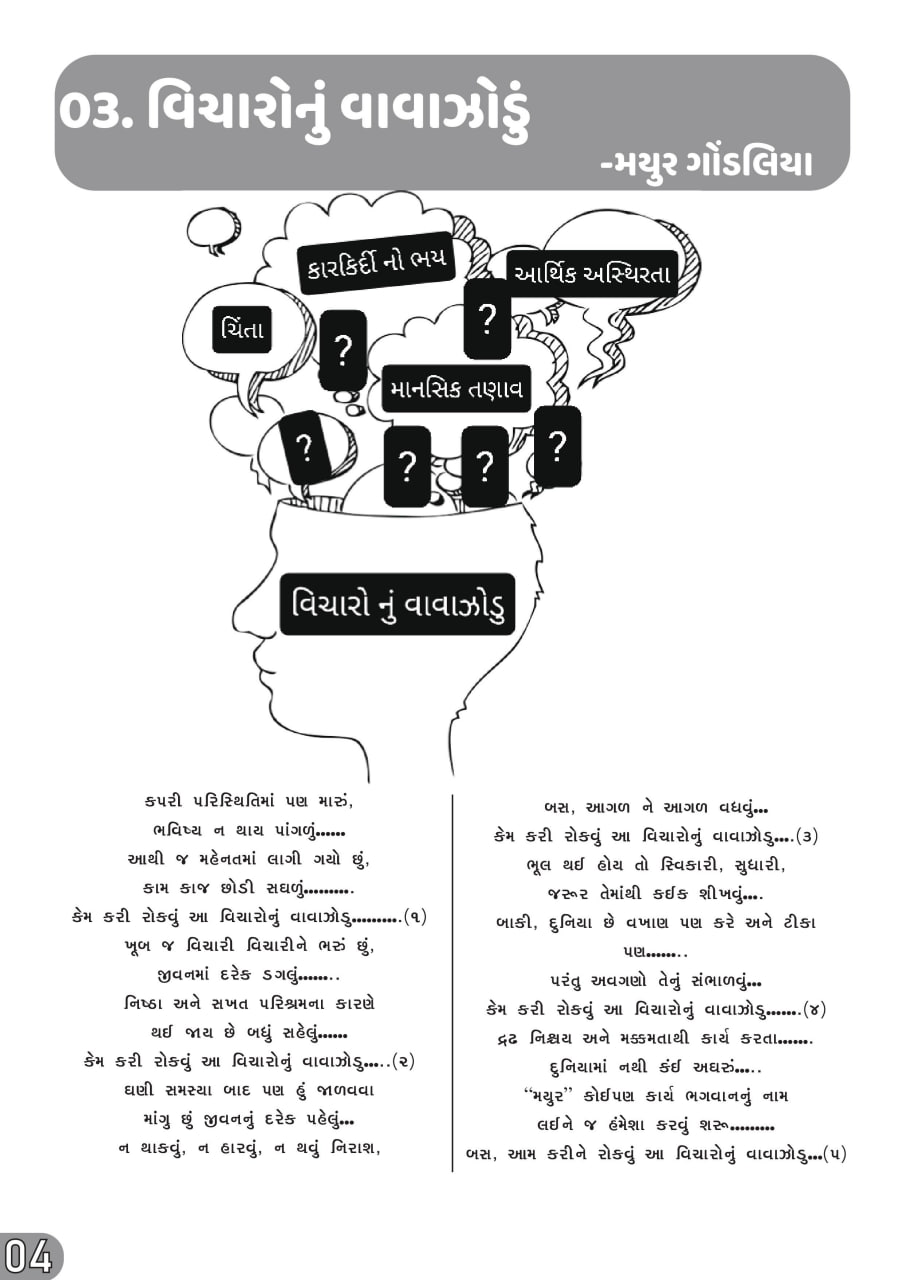 03. વિચારોનું વાવાઝોડું
-મયુર ગોંડલિયા
કારકિર્દી નો ભય
આર્થિક અસ્થિરતા
ચિંતા
?
?
માનસિક તણાવ
?
?
?
?
વિચારો નું વાવાઝોડુ
કપરી પરિસ્થિતિમાં પણ મારું,
ભવિષ્ય ન થાય પાંગળું......
આથી જ મહેનતમાં લાગી ગયો છું,
કામ કાજ છોડી સઘળું..........
કેમ કરી રોકવું આ વિચારોનું વાવાઝોડુ..........(૧)
ખૂબ જ વિચારી વિચારીને ભરું છું,
જીવનમાં દરેક ડગલું........
નિષ્ઠા અને સખત પરિશ્રમના કારણે
થઈ જાય છે બધું સહેલું......
કેમ કરી રોકવું આ વિચારોનું વાવાઝોડુ.....(૨)
ઘણી સમસ્યા બાદ પણ હું જાળવવા
માંગુ છું જીવનનું દરેક પહેલું...
ન થાકવું, ન હારવું, ન થવું નિરાશ,
બસ, આગળ ને આગળ વધવું...
કેમ કરી રોકવું આ વિચારોનું વાવાઝોડુ....(૩)
ભૂલ થઈ હોય તો સ્વિકારી, સુધારી,
જરૂર તેમાંથી કઈક શીખવું....
બાકી, દુનિયા છે વખાણ પણ કરે અને ટીકા
પણ.......
પરંતુ અવગણો તેનું સંભાળવું...
કેમ કરી રોકવું આ વિચારોનું વાવાઝોડુ.......(૪)
દ્રઢ નિશ્ચય અને મક્કમતાથી કાર્ય કરતા.......
દુનિયામાં નથી કંઈ અઘરું.....
“મયુર” કોઈપણ કાર્ય ભગવાનનું નામ
લઈને જ હંમેશા કરવું શરૂ.........
બસ, આમ કરીને રોકવું આ વિચારોનું વાવાઝોડુ...(૫)
04